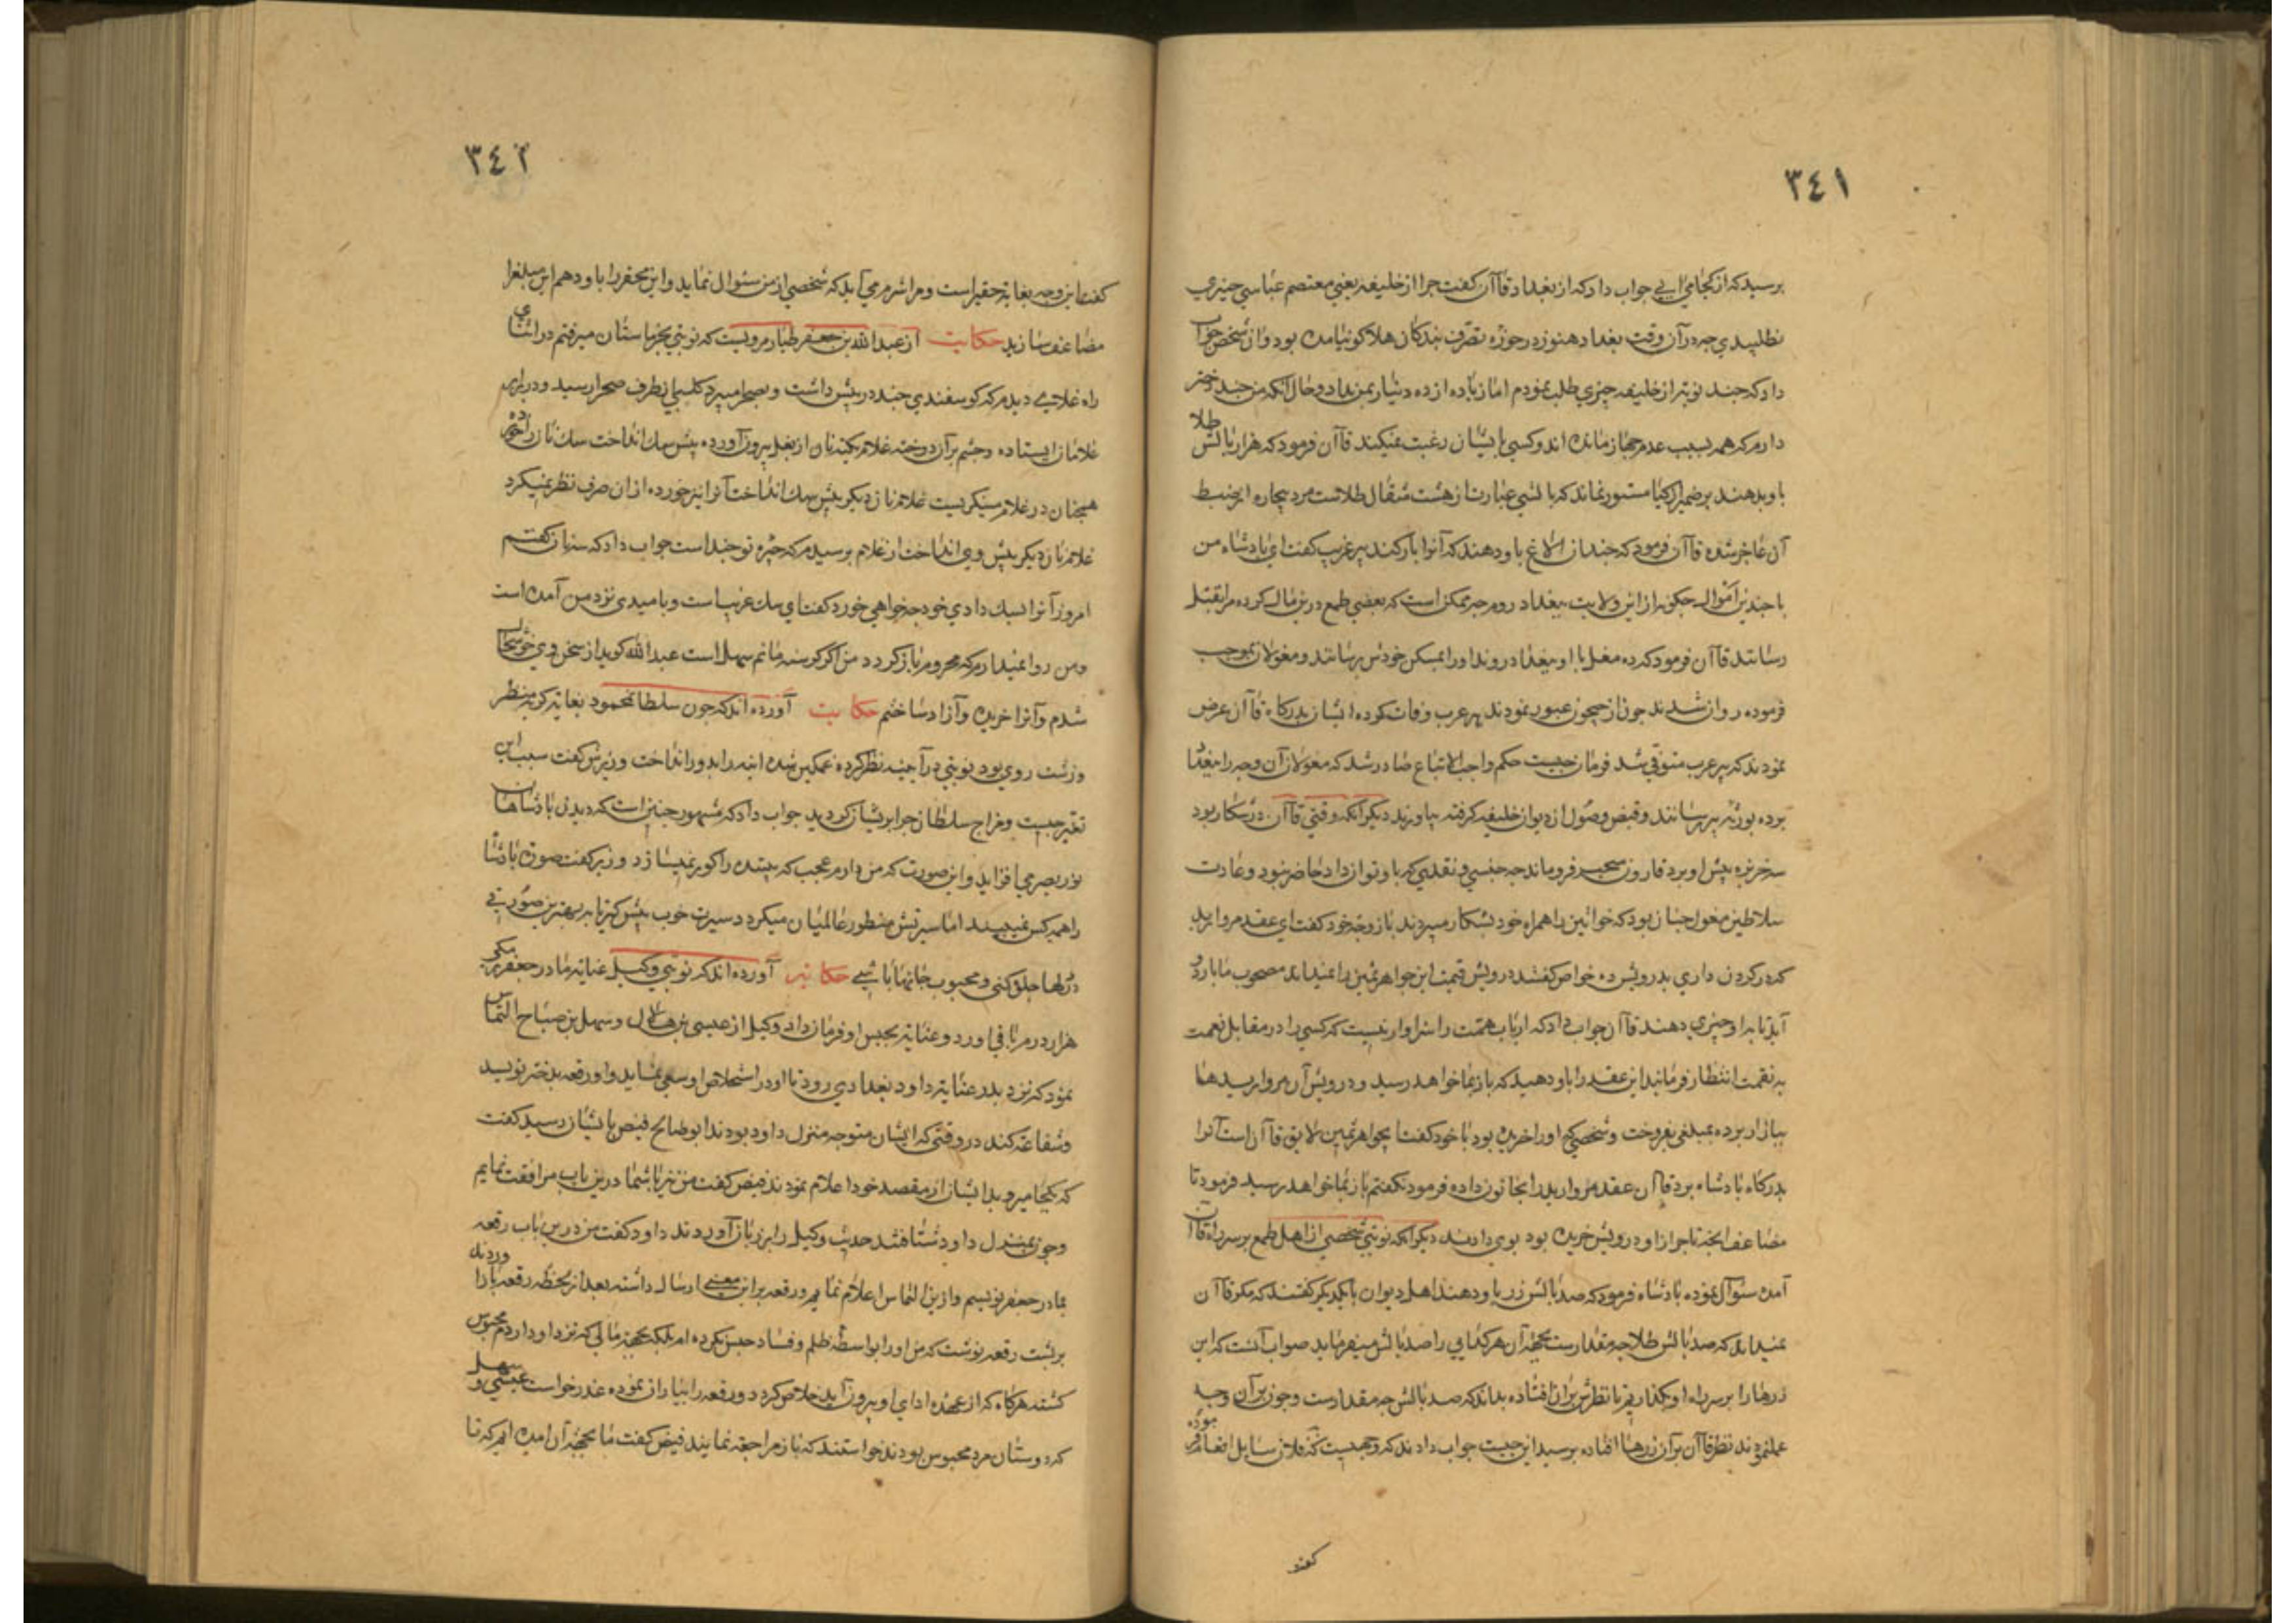 ٣٤١
برسید که از کجا می آیی جواب داد که از بغداد قاآن گفت چرا از خلیفه یعنی معتصم عباسی چیزی
نطلبیدی چه در آن وقت بغداد هنوز در حوزه تصرف بندکان هلاکو نیامده بود و آن شخص جواب
داد که چند نوبت از خلیفه چیزی طلب نمودم اما زیاده از ده دینار بمن نداد و حال آنکه من چند دختر
دارم که همه بسبب عدم جهاز مانده اند و کسی بایشان رغبت نمیکند قاآن فرمود که هزار بالش طلا
باو بدهند بر ضمیر اذکیا مستور نماند که بالشی عبارت از هشت مثقال طلاست مرد بیچاره از ضبط
آن عاجز شده قاآن فرمود که چند از الاغ باو دهند که آنرا بار کند پیر غریب گفت ای پادشاه من
با چندین اموال چکونه از این ولایت ببغداد روم چه ممکن است که بعضی طمع در این مال کرده مرا بقتل
رسانند قاآن فرمود که ده مغل با او ببغداد روند و او را بمسکن خودش برسانند و مغولان بموجب
فرموده روان شدند چون از جیحون عبور نمودند پیر عرب وفات کرده ایشان بدرکاه قاآن عرض
نمودند که پیر عرب متوفی شد فرمان چیست حکم واجب الاتباع صادر شد که مغولان آن وجه را ببغداد
برده بورثه پیر رسانند و قبض وصول از دیوان خلیفه گرفته بیاورند دیکر آنکه وقتی قاآن در شکار بود
سه خربزه پیش او برد قارون متحیر فروماند چه جنسی و نقدی که باو توان داد حاضر نبود و عادت
سلاطین مغول چنان بود که خواتین را همراه خود بشکار میبردند با زوجه خود گفت ای عقد مروارید
که در کردن داری بدرویش ده خواص گفتند درویش قیمت این جواهر ثمین را نمیداند مصحوب ما باردو
آید تا بدو چیزی دهند قاآن جواب داد که ارباب همت را سزاوار نیست که کسی را در مقابل نعمت
به نقمت انتظار فرمایند این عقد را باو دهید که باز بما خواهد رسید و درویش آن مرواریدها
ببازار برده بمبلغی بفروخت و شخصی که او را خریده بود با خود گفت این جواهر ثمین لایق قاآن است آنرا
بدرکاه پادشاه برد قاآن عقد مروارید را بخاتون داده فرمود نکفتم باز بما خواهد رسید فرمود تا
مضاعف آنچه تاجر از او درویش خریده بود بوی دادند دیکر آنکه نوبتی شخصی از اهل طمع بر سر راه قاآن
آمده سئوال نموده پادشاه فرمود که صد بالش زر باو دهند اهل دیوان با یکدیکر کفتند که مکر قاآن
نمیداند که صد بالش طلا چه مقدارست بجهة آن هر کدایی را صد بالش میفرماید صواب آنست که این
زرها را بر سر راه او بکذاریم تا نظرش بر آن افتاده بداند که صد بالش چه مقدارست و چون بر آن وجه
عمل نمودند نظر قاآن بر آن زرها افتاده برسید این چیست جواب دادند که وجهیست که فلان سایل انعام فرموده
کفت
٣٤٢
کفت این وجه بغایة حقیر است و مرا شرم می آید که شخصی از من سئوال نماید و این محقر را باو دهم این مبلغ را
مضاعف سازید حکایت از عبدالله بن جعفر طیار مرویست که نوبتی بخرماستان میرفتم در اثنای
راه غلامی دیدم که کوسفندی چند در پیش داشت و بصحرا میبرد کلبی از طرف صحرا رسید و در برابر
غلامان ایستاده و چشم بر آن دوخته غلام یکته نان از بغل بیرون آورده پیش سک انداخت سک نان را خورده
همچنان در غلام مینکریست غلام نان دیکر پیش سک انداخت آنرا نیز خورده از ان صرف نظر نمیکرد
غلام نان دیکر پیش وی انداخت از غلام برسیدم که جیره تو چند است جواب داد که سه نان کفتم
امروز آنرا بسک دادی خود چه خواهی خورد کفت ای سک غریب است و بامیدی نزد من آمده است
ومن روا نمیدارم که محروم باز کردد من اکر کرسنه مانم سهل است عبدالله کوید از سخن وی خوشحال
شدم و آنرا خریده و آزاد ساختم حکایت آورده اند که چون سلطان محمود بغایة کریه منظر
و زشت روی بود نوبتی در آینه نظر کرده غمکین شده آینه را بدور انداخت وزیرش کفت سبب این
تغیر چیست و مزاج سلطان چرا پریشان کردید جواب داد که مشهور چنین است که دیدن پادشاهان
نور بصر می افزاید و این صورت که من دارم عجب که بیننده را کور نمیسازد وزیر کفت صورة پادشاه
را همه کس نمیبیند اما سیرتش منظور عالمیان میکردد سیرت خوب پیش گیر تا به بهترین صورتی
در دلها جلوه کنی و محبوب جانها باشی حکایة آورده اند که نوبتی وکیل عنایة مادر جعفر برمکی
هزار درم باقی آورد و عنایة بحبس او فرمان داد وکیل از عیسی بن هلال و سهل بن صباح التماس
نمود که نزد پدر عنایة داود بغدادی رود تا او در استخلاص او سعی نماید و او رقعه بدختر نویسد
و شفاعة کند در وقتی که ایشان متوجه منزل داود بودند ابو صالح فیض بایشان رسید کفت
که بکجا میروید ایشان از مقصد خود اعلام نمودند فیض کفت من نیز با شما درین باب مرافقت نمایم
و چون بمنزل داود شتافتند حدیث وکیل را بر زبان آوردند داود کفت من در این باب رقعه
بمادر جعفر نویسم و از این التماس اعلام نمایم و رقعه بر این معنی ارسال داشته بعد از لحظه رقعه باز آوردند
بر پشت رقعه نوشت که من او را بواسطه ظلم و فساد حبس نکرده ام بلکه بجهة مالی که نزد او دارم محبوس
کشته هرکاه که از عهده ادای او بیرون آید خلاص کردد و رقعه را بنیاز نموده عذر خواست عیسی و سهل
که دوستان مرد محبوس بودند خواستند که باز مراجعة نمایند فیض کفت ما بجهة آن آمده ایم که تا